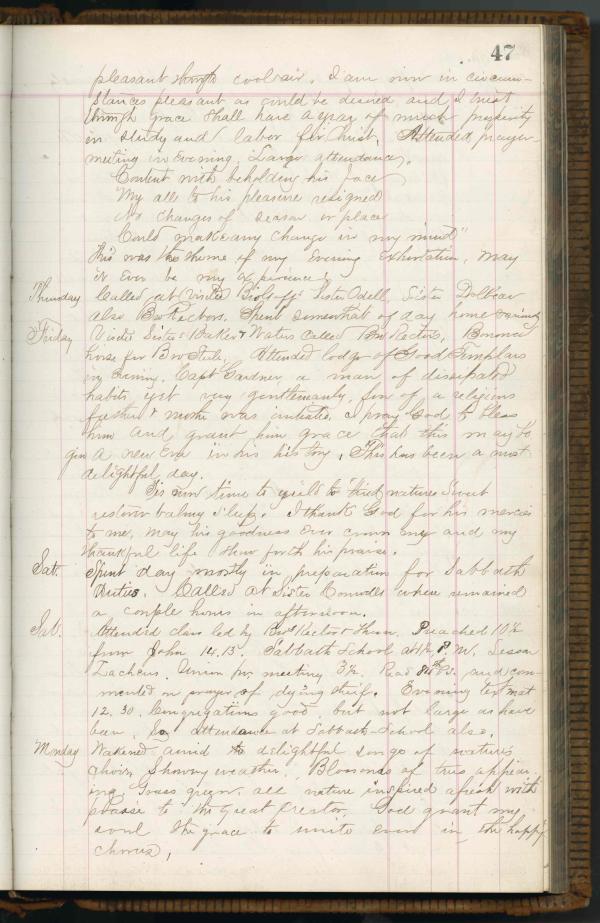 47
pleasant though cool air. I am now in circum-
stances pleasant as could be desired and I trust
through grace shall have a year of much prosperity
in study and labor for Christ. Attended prayer-
meeting in evening. Large attendance.
Content with beholding his face
My all to his pleasure resigned
No changes of season or place
Could make any change in my mind"
This was the theme of my evening exhortation, may
it ever be my experience!
Thursday Called at Sister Odell, Sister Dolbear
also Bro Rectors. Spent somewhat of day home
Friday Visited Sisters Baker & Waters called Bro Rectors,
horse for Bro Attended lodge of Good Templars
in evening. Capt Gardner a man of dissipated
habits yet very gentlemanly, son of a religious
father & mother was initiated. I pray God to bless
him and grant him grace that this may be
gin a new Era in his history. This has been a most
delightful day.
Tis now time to yield to tired natures sweet
restorer balmy sleep. I thank God for his mercies
to me, may his goodness ever crown my and my
thankful life show forth his praise.
Sat. Spent day mostly in preparation for Sabbath
Duties. Called at Sister where remained
a couple hours in afternoon.
Sab. Attended class led by Bro Rector Preached 10½
from John 14.13. Sabbath School at P.M. Lesson
Zacheus. Union pr. meeting 3½. Read 84th Ps. and com-
mented on prayer of dying thief. Evening text mat
12.30. Congregations good, but not large as have
been. Attendance at Sabbath-School also.
Monday Wakened amid delightful songs of natures
choir, Showery weather. Blossoms of trees appear
ing. Grass green, all nature inspired afresh with
praise to the Great Creator. God grant my
soul the grace to unite ever in the happy
chorus.